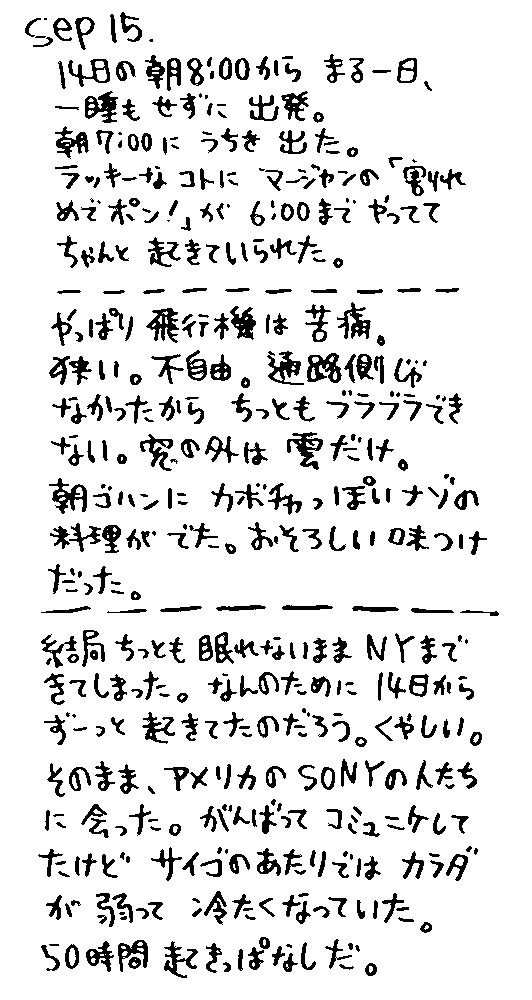 Sep 15.
14日の朝8:00から まる一日、
一睡も せずに 出発。
朝7:00に うちを 出た。
ラッキーな コトに マージャンの「割れ
めでポン!」が 6:00まで やってて
ちゃんと 起きていられた。
やっぱり 飛行機は 苦痛。
狭い。不自由。通路側じゃ
なかったから ちっとも ブラブラでき
ない。窓の外は 雲だけ。
朝ゴハンに カボチャっぽいナゾの
料理が でた。おそろしい 味つけ
だった。
結局 ちっとも 眠れないまま NYまで
きてしまった。なんのために 14日から
ずーっと 起きてたのだろう。くやしい。
そのまま、アメリカの SONYの人たち
に 会った。がんばって コミュニケして
たけど サイゴのあたりでは カラダ
が 弱って 冷たくなっていた。
50時間 起きっぱなしだ。